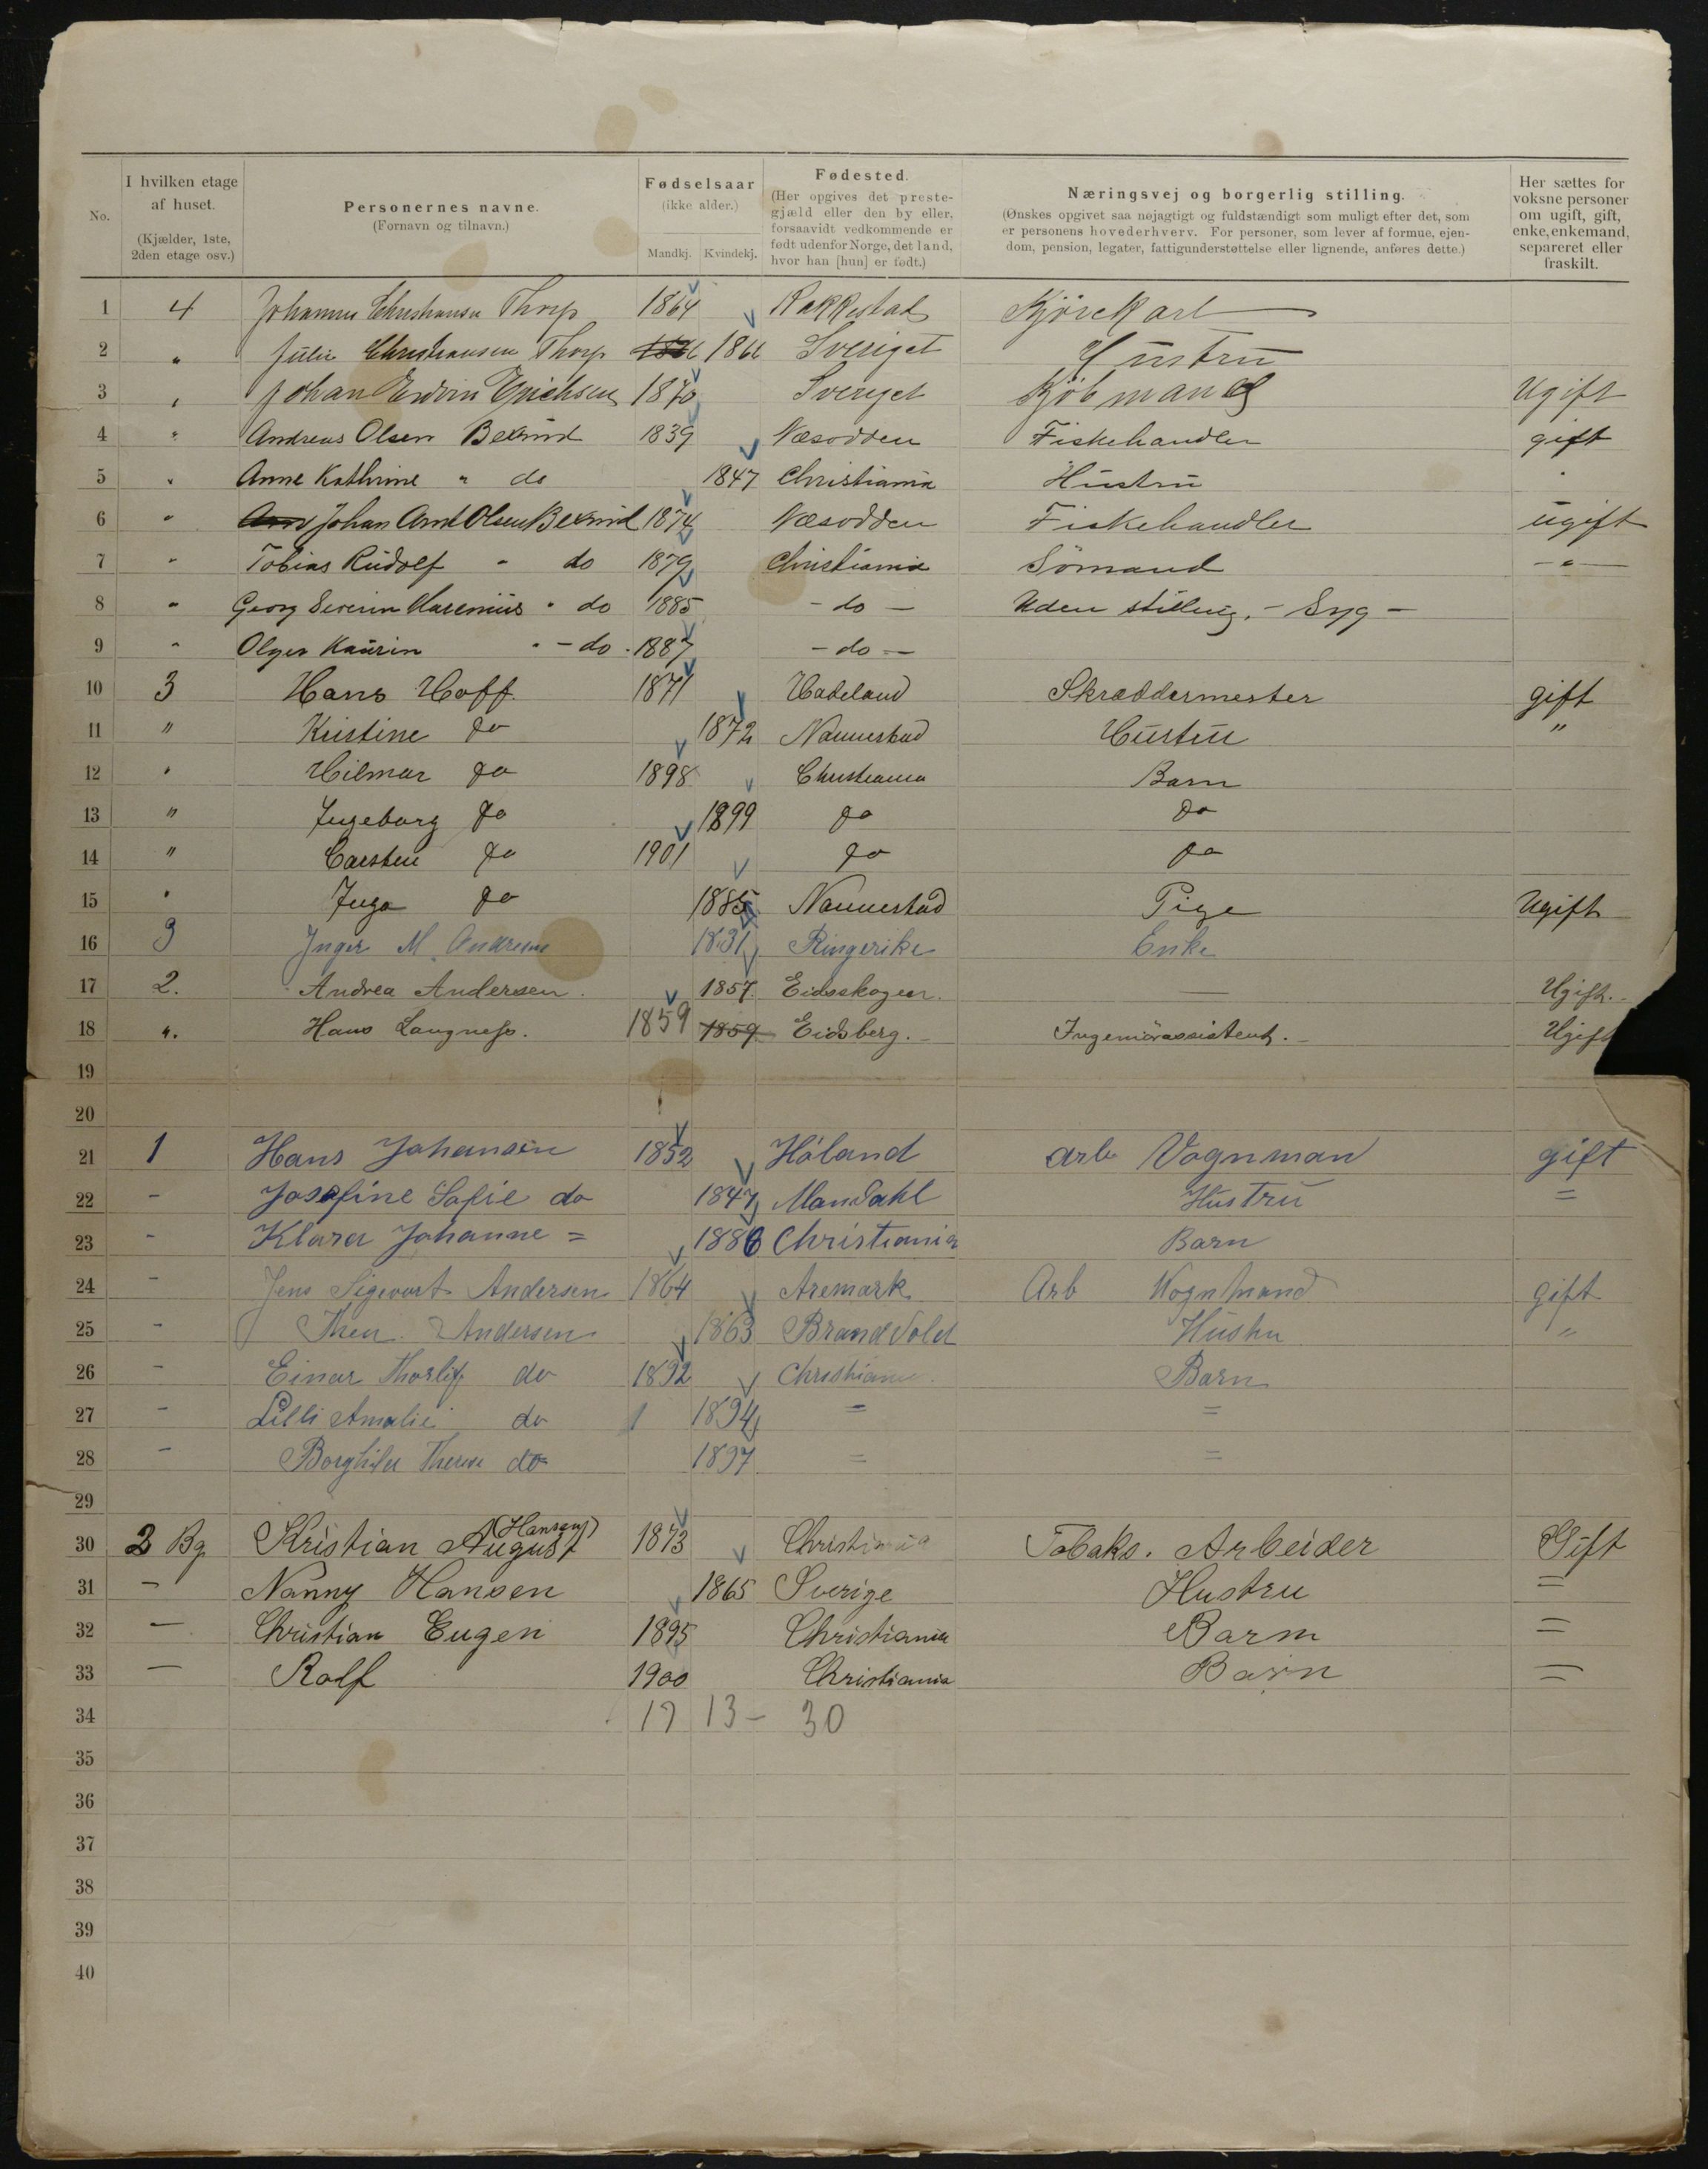 No.
I hvilken etage af huset. (Kjælder, 1ste, 2den etage osv.)
Personernes navne. (Fornavn og tilnavn.)
Fødselsaar (ikke alder.) Mandkj. Kvindekj.
Fødested. (Her opgives det prestegjæld eller den by eller, forsaavidt vedkommende er født udenfor Norge, det land, hvor han [hun] er født.)
Næringsvej og borgerlig stilling. (Ønskes opgivet saa nøjagtigt og fuldstændigt som muligt efter det, som er personens hovederhverv. For personer, som lever af formue, ejendom, pension, legater, fattigunderstøttelse eller lignende, anføres dette.)
Her sættes for voksne personer om ugift, gift, enke, enkemand, separeret eller fraskilt.
1 4 Johannes Christiansen Thorp 1864 Rakkestad Kjørekarl
2 " Julie Christiansen Thorp 1866 Sveriget Hustru
3 " Johan Erichsen 1870 Sveriget Kjøbmand Ugift
4 " Andreas Olsen 1839 Næsodden Fiskehandler gift
5 " Anne Kathrine " do 1847 Christiania Hustru "
6 " Johan Arnt Olsen 1874 Næsodden Fiskehandler ugift
7 " Tobias Rudolf " do 1879 Christiania Sømand - " -
8 " Georg Severin Marenius " do 1885 - do - Uden stilling. - Syg -
9 " Olger Kaurin " - do - 1887 - do -
10 3 Hans Hoff 1871 Hadeland Skræddermester gift
11 " Kristine do 1872 Nannestad Hustru "
12 " Hilmar do 1898 Christiania Barn
13 " Ingeborg do 1899 do do
14 " Carsten do 1901 do do
15 " Inga do 1885 Nannestad Pige Ugift
16 3 Inger M. Andresen 1831 Ringerike Enke
17 2. Andrea Andersen. 1857. Eidsskogen. — Ugift.
18 ". Hans Langness. 1859 1859 Eidsberg. Ingeniørassistent. Ugift
19
20
21 1 Hans Johansen 1852 Høland arb Vognman gift
22 - Josefine Sofie do 1847 Mandahl Hustru =
23 - Klara Johanne = 1886 Christiania Barn
24 - Jens Sigvart Andersen 1864 Aremark Arb Vognmand gift
25 - Thea Andersen 1863 Brandvold Hustru "
26 - Einar Thorlif do 1892 Christiania Barn
27 - Lilli Amalie do 1894 = =
28 - Borghild Therese do 1897 = =
29
30 2 Bg Kristian August (Hansen) 1873 Christiania Tobaks. Arbeider Gift
31 - Nanny Hansen 1865 Sverige Hustru =
32 - Christian Eugen 1895 Christiania Barn =
33 - Rolf 1900 Christiania Barn =
34 17 13 - 30
35
36
37
38
39
40